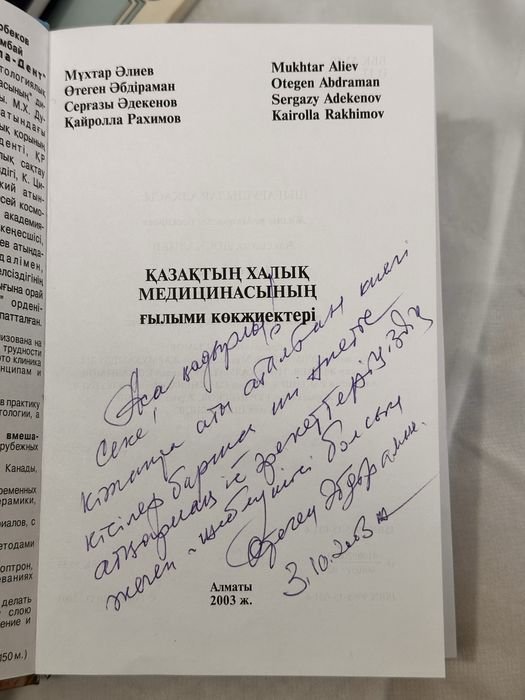 Мұхтар Әлиев
Өтеген Әбдіраман
Серғазы Әдекенов
Қайролла Рахимов
Mukhtar Aliev
Otegen Abdraman
Sergazy Adekenov
Kairolla Rakhimov
ҚАЗАҚТЫҢ ХАЛЫҚ
МЕДИЦИНАСЫНЫҢ
ғылыми көкжиектері
Аса қадірлі
Секе!
Кітапта аты аталған
кісілер барша
атқарған іс әрекеттеріңіздің
жеген болсын
Өтеген Әбдіраман.
3.10.2003 ж
Алматы
2003 ж.
рбеков
мбай
ла-Дент"
тологиялық
асының" ди-
ы. М.Х. Ду-
атындағы
ық қорының
денті, ҚР
лық сақтау
здігі, К. Ци-
кий атын-
сей космо-
академия-
кеңесшісі,
ев атында-
далімен,
елсіздігінің
ығына орай
" ордені-
патталған.
изована на
трудности
ого клиника
нципам и
в практику
тологии, а
вмеша-
рубежных
Канады,
временных
ерамики,
риалов, с
етодами
поптрон,
леваниях
делать
слою
ение и
150 м.)